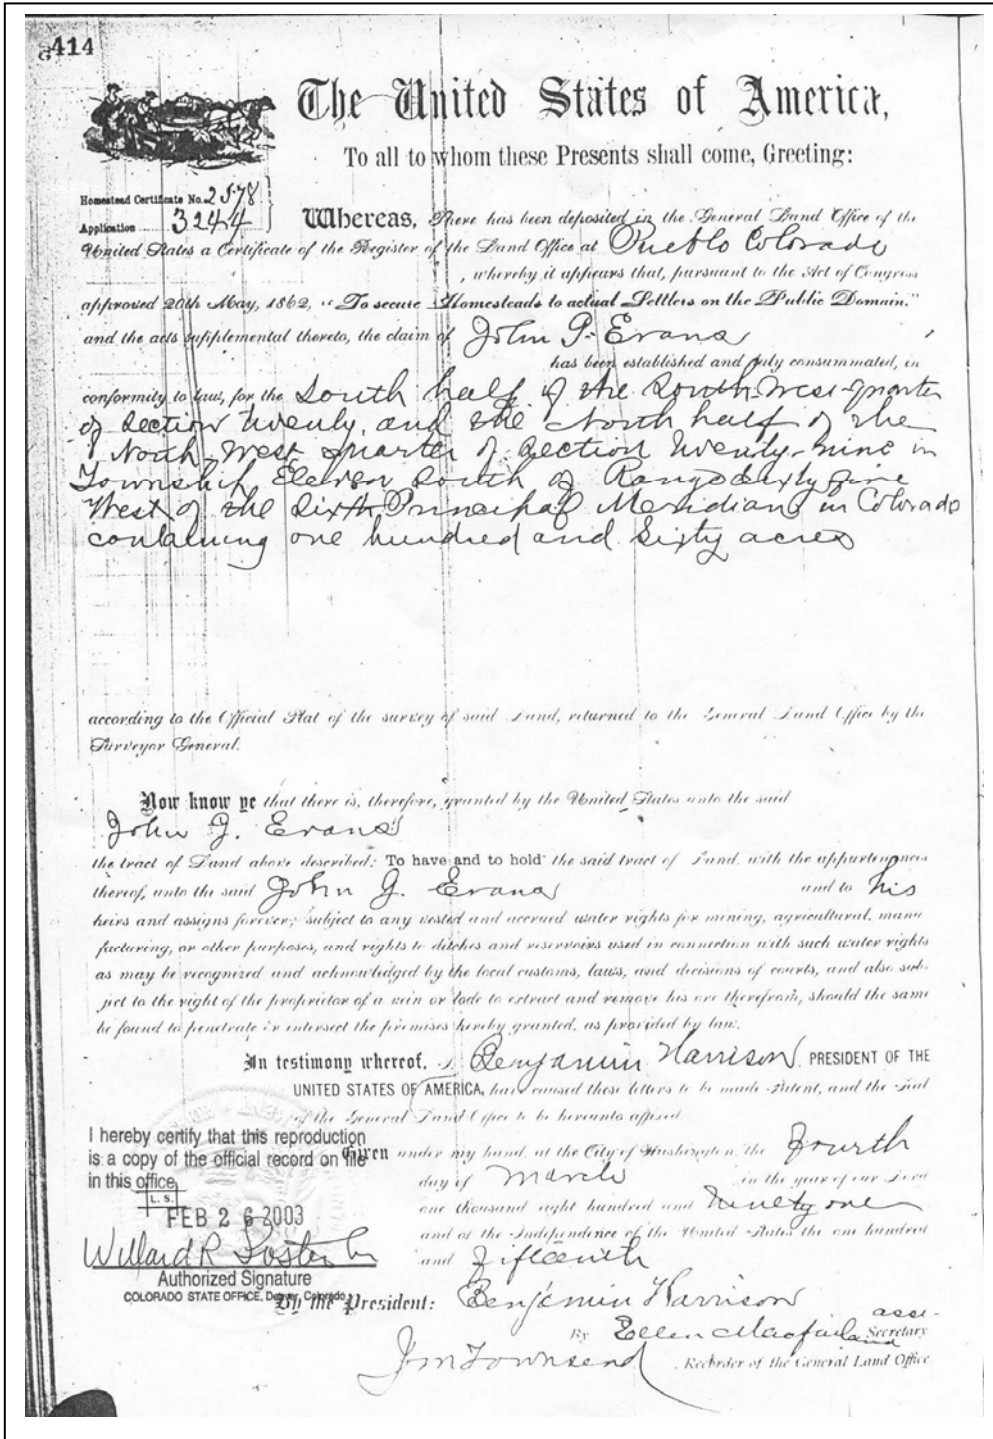 414
The United States of America,
To all to whom these Presents shall come, Greeting:
Homestead Certificate No. 2578
Application 3244
Whereas, There has been deposited in the General Land Office of the
United States a Certificate of the Register of the Land Office at Pueblo Colorado
, whereby it appears that, pursuant to the Act of Congress
approved 20th May, 1862, "To secure Homesteads to actual Settlers on the Public Domain,"
and the acts supplemental thereto, the claim of John P. Evans
has been established and duly consummated, in
conformity to law, for the South half of the South West quarter
of Section twenty, and the North half of the
North West quarter of Section twenty-nine in
Township Eleven South of Range Sixty five
West of the Sixth Principal Meridian in Colorado
containing one hundred and Sixty acres
according to the Official Plat of the survey of said Land, returned to the General Land Office by the
Surveyor General.
Now know ye that there is, therefore, granted by the United States unto the said
John J. Evans
the tract of Land above described: To have and to hold the said tract of Land, with the appurtenances
thereof, unto the said John J. Evans and to his
heirs and assigns forever; subject to any vested and accrued water rights for mining, agricultural, manu
facturing, or other purposes, and rights to ditches and reservoirs used in connection with such water rights
as may be recognized and acknowledged by the local customs, laws, and decisions of courts, and also sub-
ject to the right of the proprietor of a vein or lode to extract and remove his ore therefrom, should the same
be found to penetrate or intersect the premises hereby granted, as provided by law.
In testimony whereof, I, Benjamin Harrison, PRESIDENT OF THE
UNITED STATES OF AMERICA, have caused these letters to be made Patent, and the Seal
of the General Land Office to be hereunto affixed.
I hereby certify that this reproduction
is a copy of the official record on file
in this office.
L. S.
FEB 26 2003
Authorized Signature
COLORADO STATE OFFICE, Denver, Colorado
Given under my hand, at the City of Washington, the fourth
day of March in the year of our Lord
one thousand eight hundred and Ninety one
and of the Independence of the United States the one hundred
and fifteenth
By the President: Benjamin Harrison
By Ellen Macfarland asst Secretary
J M Townsend Recorder of the General Land Office